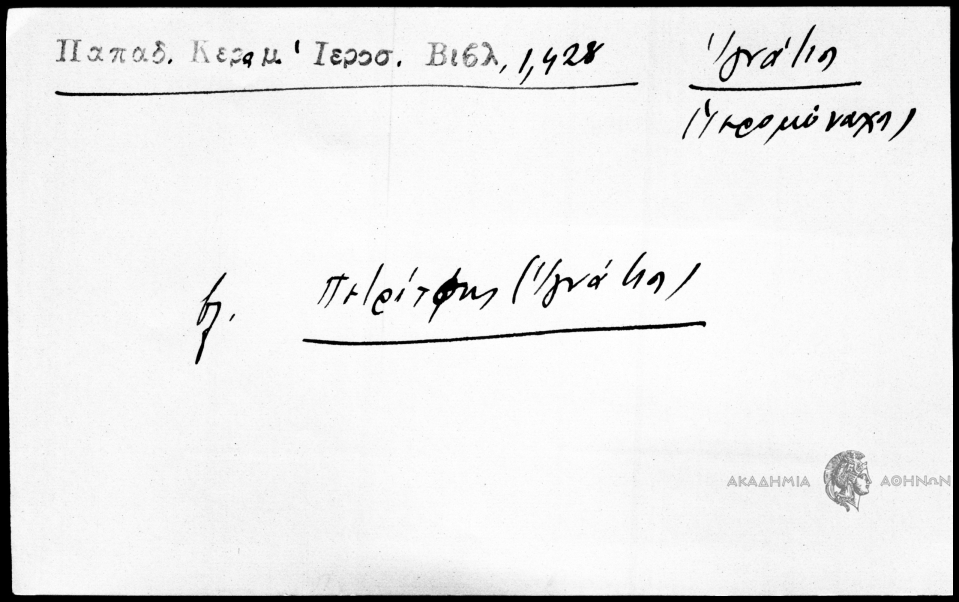 Παπαδ. Κεραμ. Ἱεροσ. Βιβλ, 1,428
Ἰγνάτιος
(Ἱερομόναχος)
βλ. Πετρίτσης (Ἰγνάτιος)
ΑΚΑΔΗΜΙΑ ΑΘΗΝΩΝ